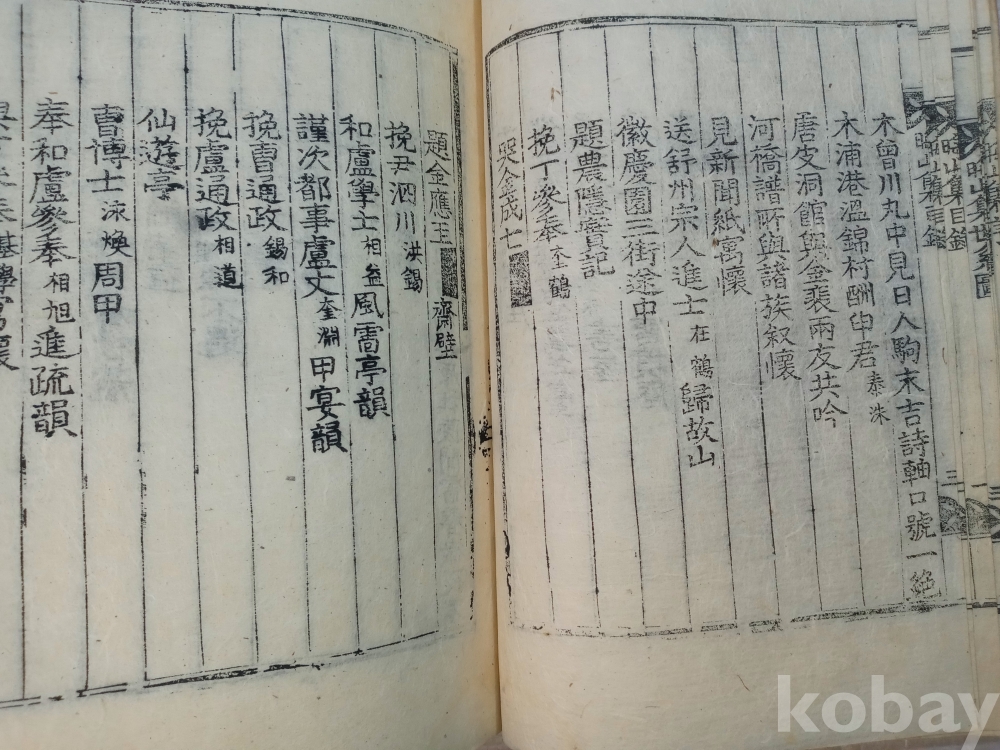 木曾川丸中見日人駒末吉詩軸口號一絶
木浦港溫錦村酬申君 泰洙
唐皮洞館與金裴兩友共吟
河橋譜所與諸族叙懷
見新聞紙寓懷
送舒州宗人進士 在鶴 歸故山
徽慶園三街途中
題農隱實記
挽丁參奉 奎鶴
哭金成七
題金應王 齋壁
挽尹泗川 洪錫
和盧學士 相益 風雩亭韻
謹次都事盧丈 奎淵 甲宴韻
挽曺通政 錫和
挽盧通政 相道
仙遊亭
曺博士 泳煥 周甲
奉和盧參奉 相旭 進疏韻
kobay